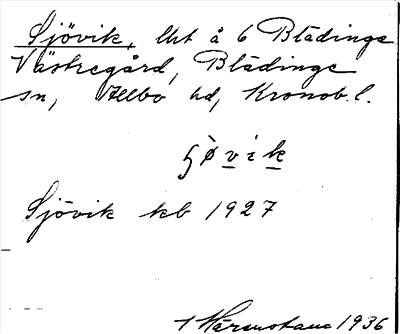 Sjövik, lht å 6 Blädinge
Västregård, Blädinge
sn, Allbo hd, Kronob. l.
ʃø̀vik
Sjövik kb 1927
1936